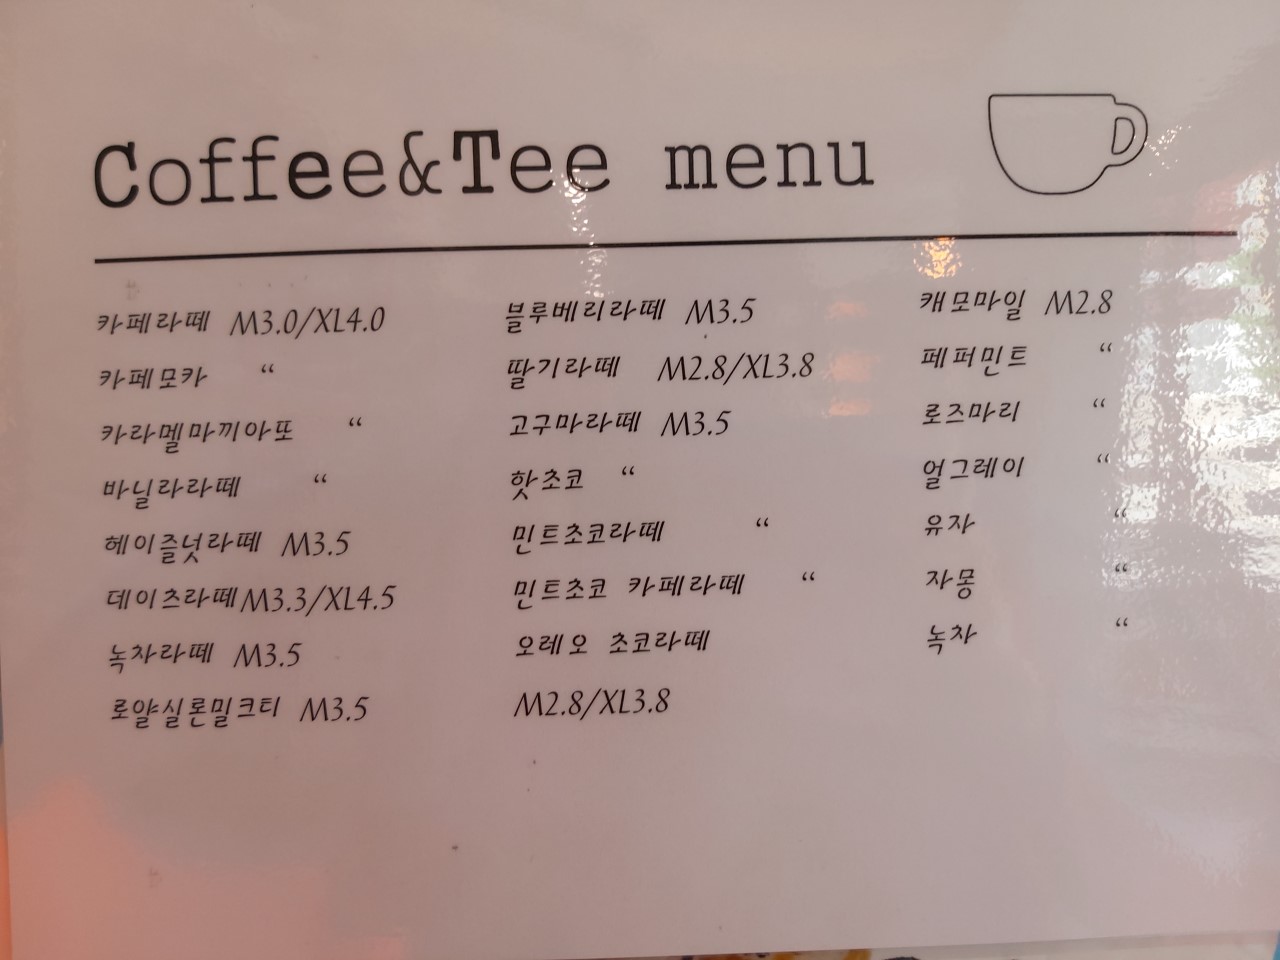 Coffee&Tee menu
카페라떼 M3.0/XL4.0
카페모카 “
카라멜마끼아또 “
바닐라라떼 “
헤이즐넛라떼 M3.5
데이츠라떼M3.3/XL4.5
녹차라떼 M3.5
로얄실론밀크티 M3.5
블루베리라떼 M3.5
딸기라떼 M2.8/XL3.8
고구마라떼 M3.5
핫초코 “
민트초코라떼 “
민트초코 카페라떼 “
오레오 초코라떼
M2.8/XL3.8
캐모마일 M2.8
페퍼민트 “
로즈마리 “
얼그레이 “
유자 “
자몽 “
녹차 “